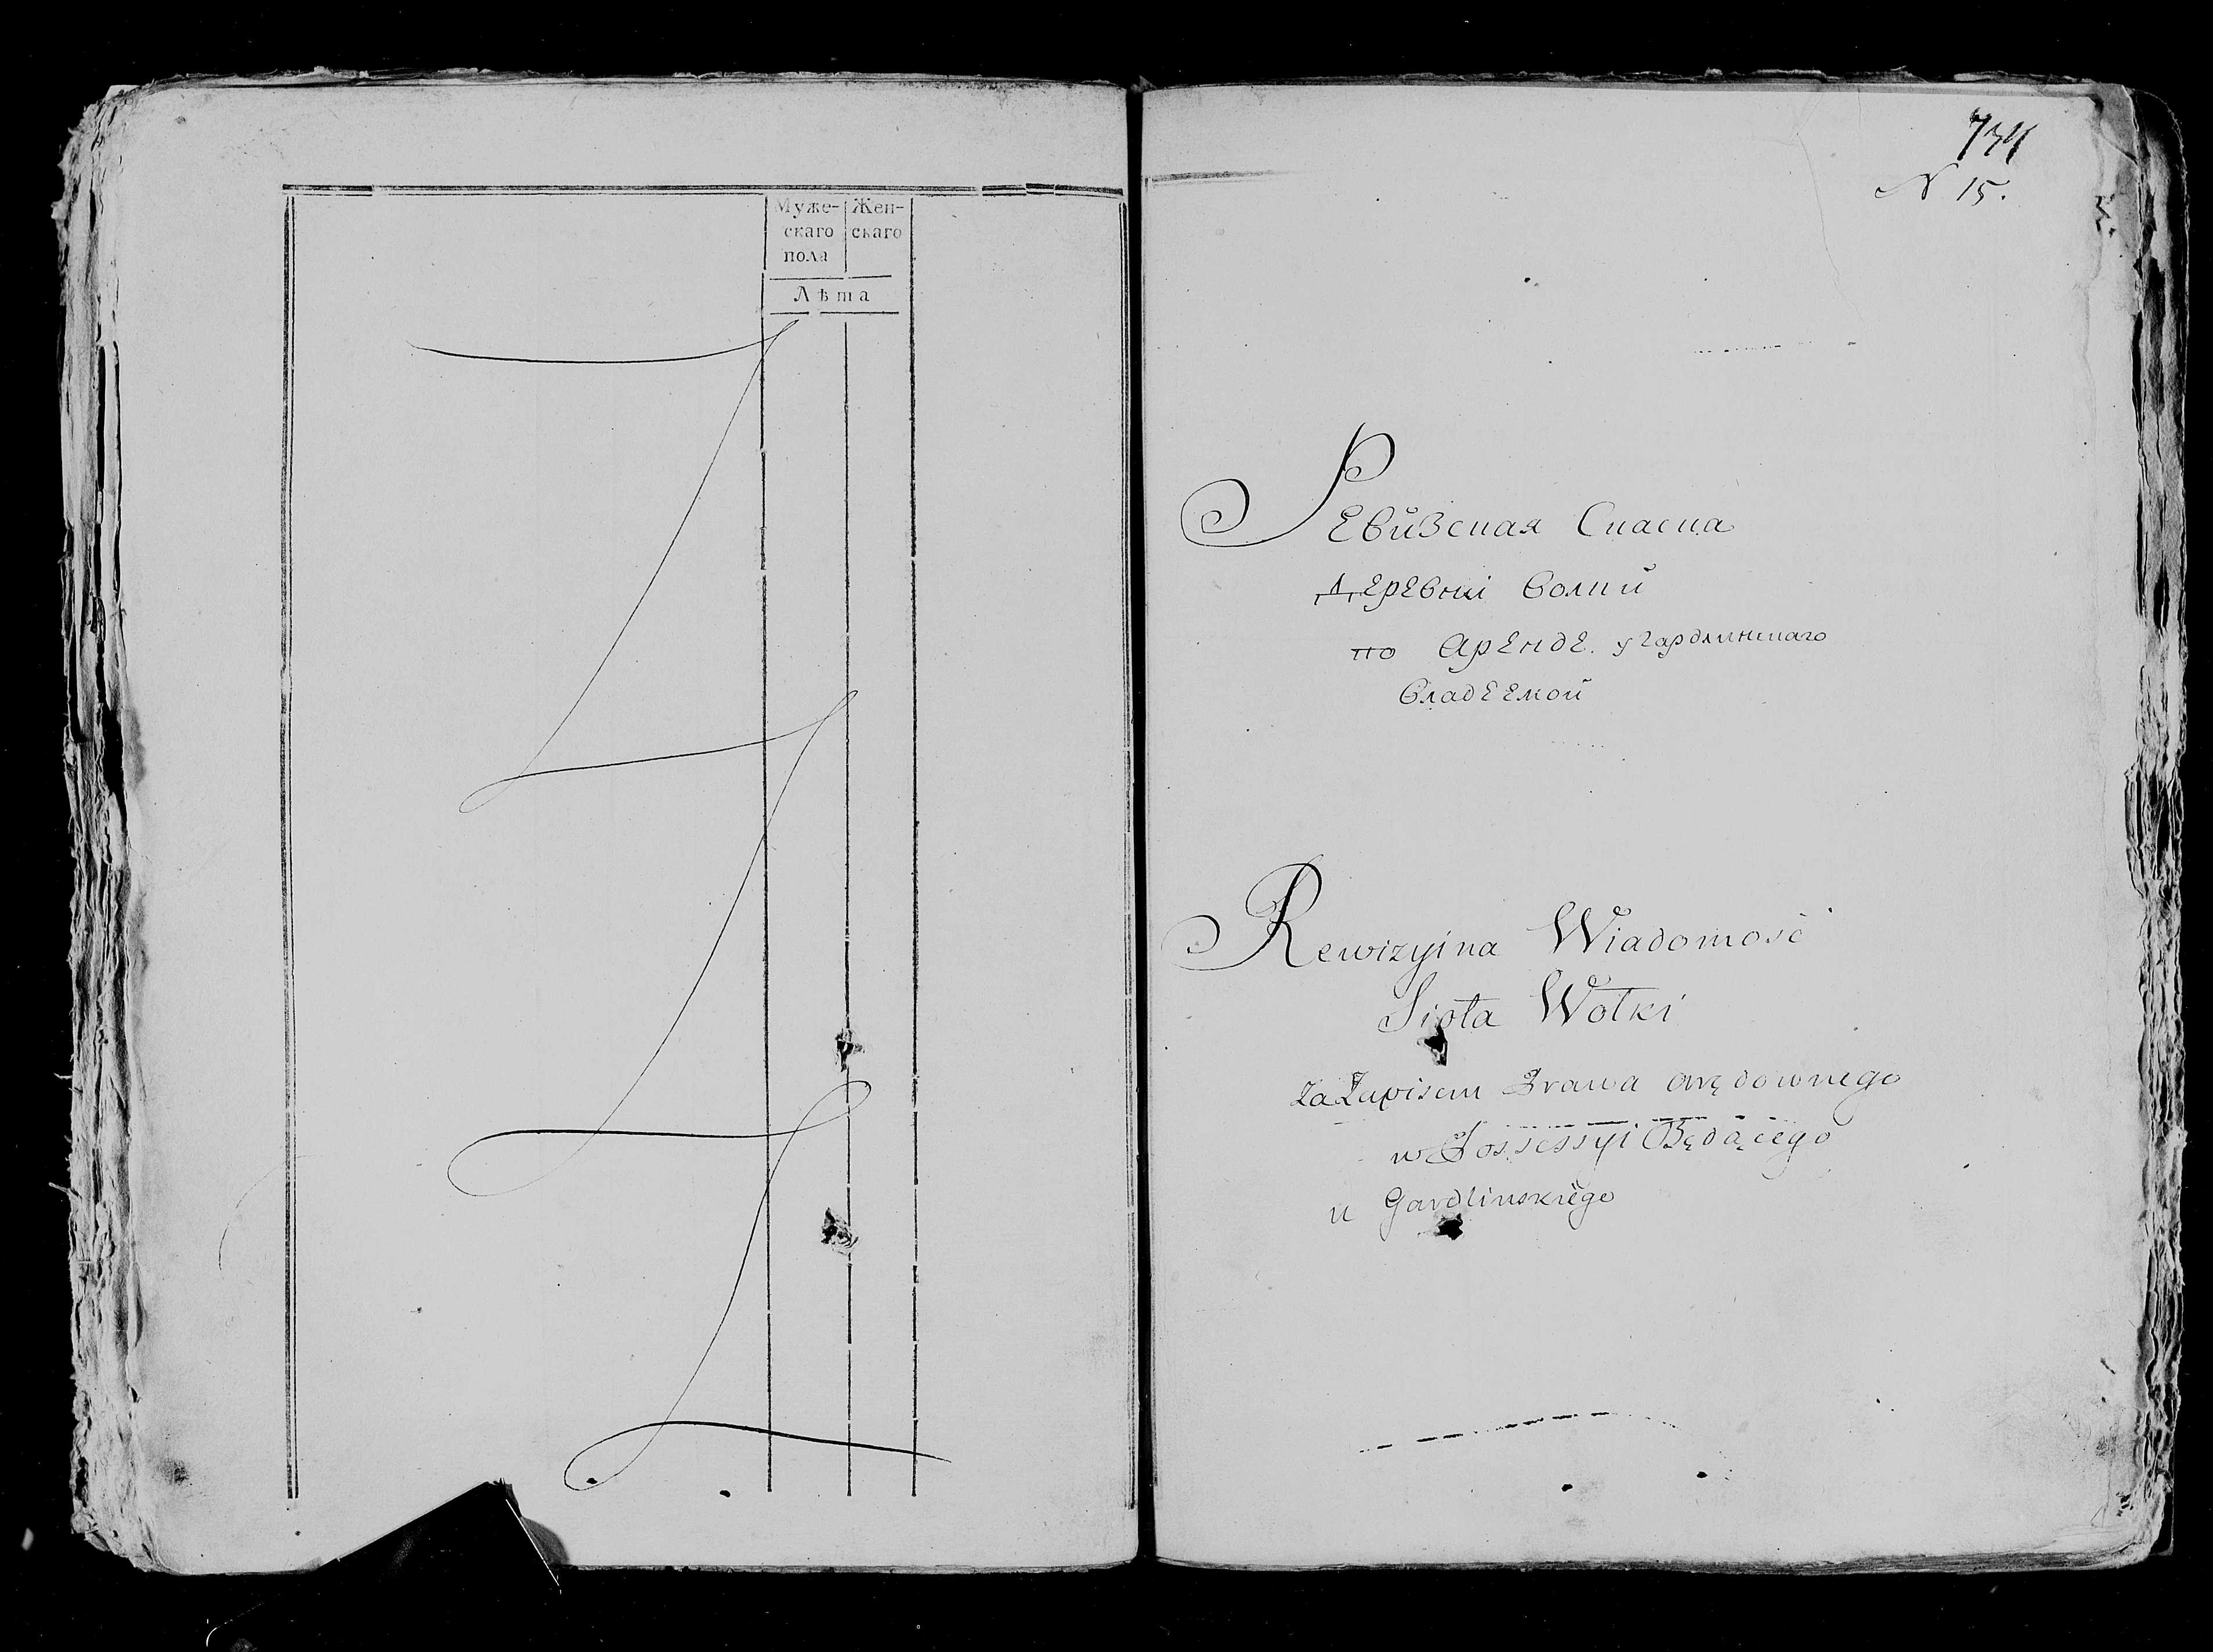 Муже-
скаго
пола
Жен-
скаго
Лѣта
734
N 15.
Ревизская Сказка
Деревнi Волки
по Аренде угардлинскаго
владеемой
Rewizyina Wiadomość
Sioła Wołki
Za Zapisem Prawa arędownego
w Possessyi Będącego
u Gardlinskiego